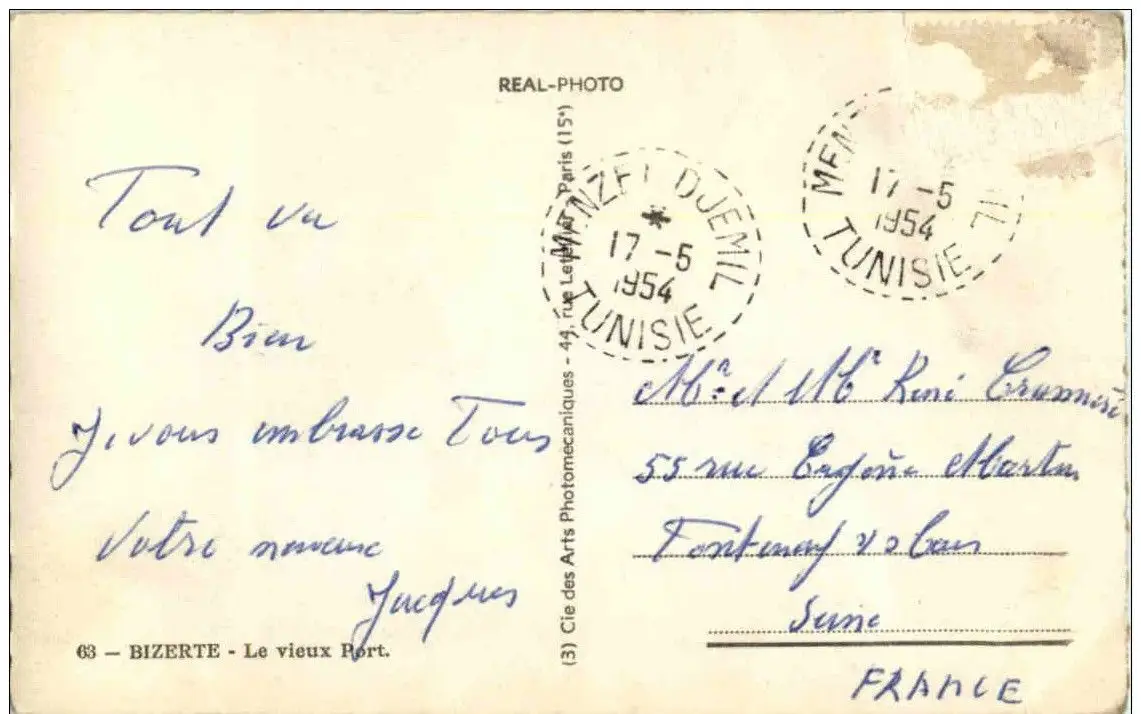 REAL-PHOTO
Tout va
Bien
Je vous embrasse Tous
Votre neveu
Jacques
63 — BIZERTE - Le vieux Port.
(3) Cie des Arts Photomecaniques - 44, rue Letellier - Paris (15e)
MENZEL DJEMIL
17 -5
1954
TUNISIE
MEN IL
17 -5
1954
TUNISIE
Mr et Me René
55 rue Eugène Martin
Fontenay s bois
Seine
FRANCE